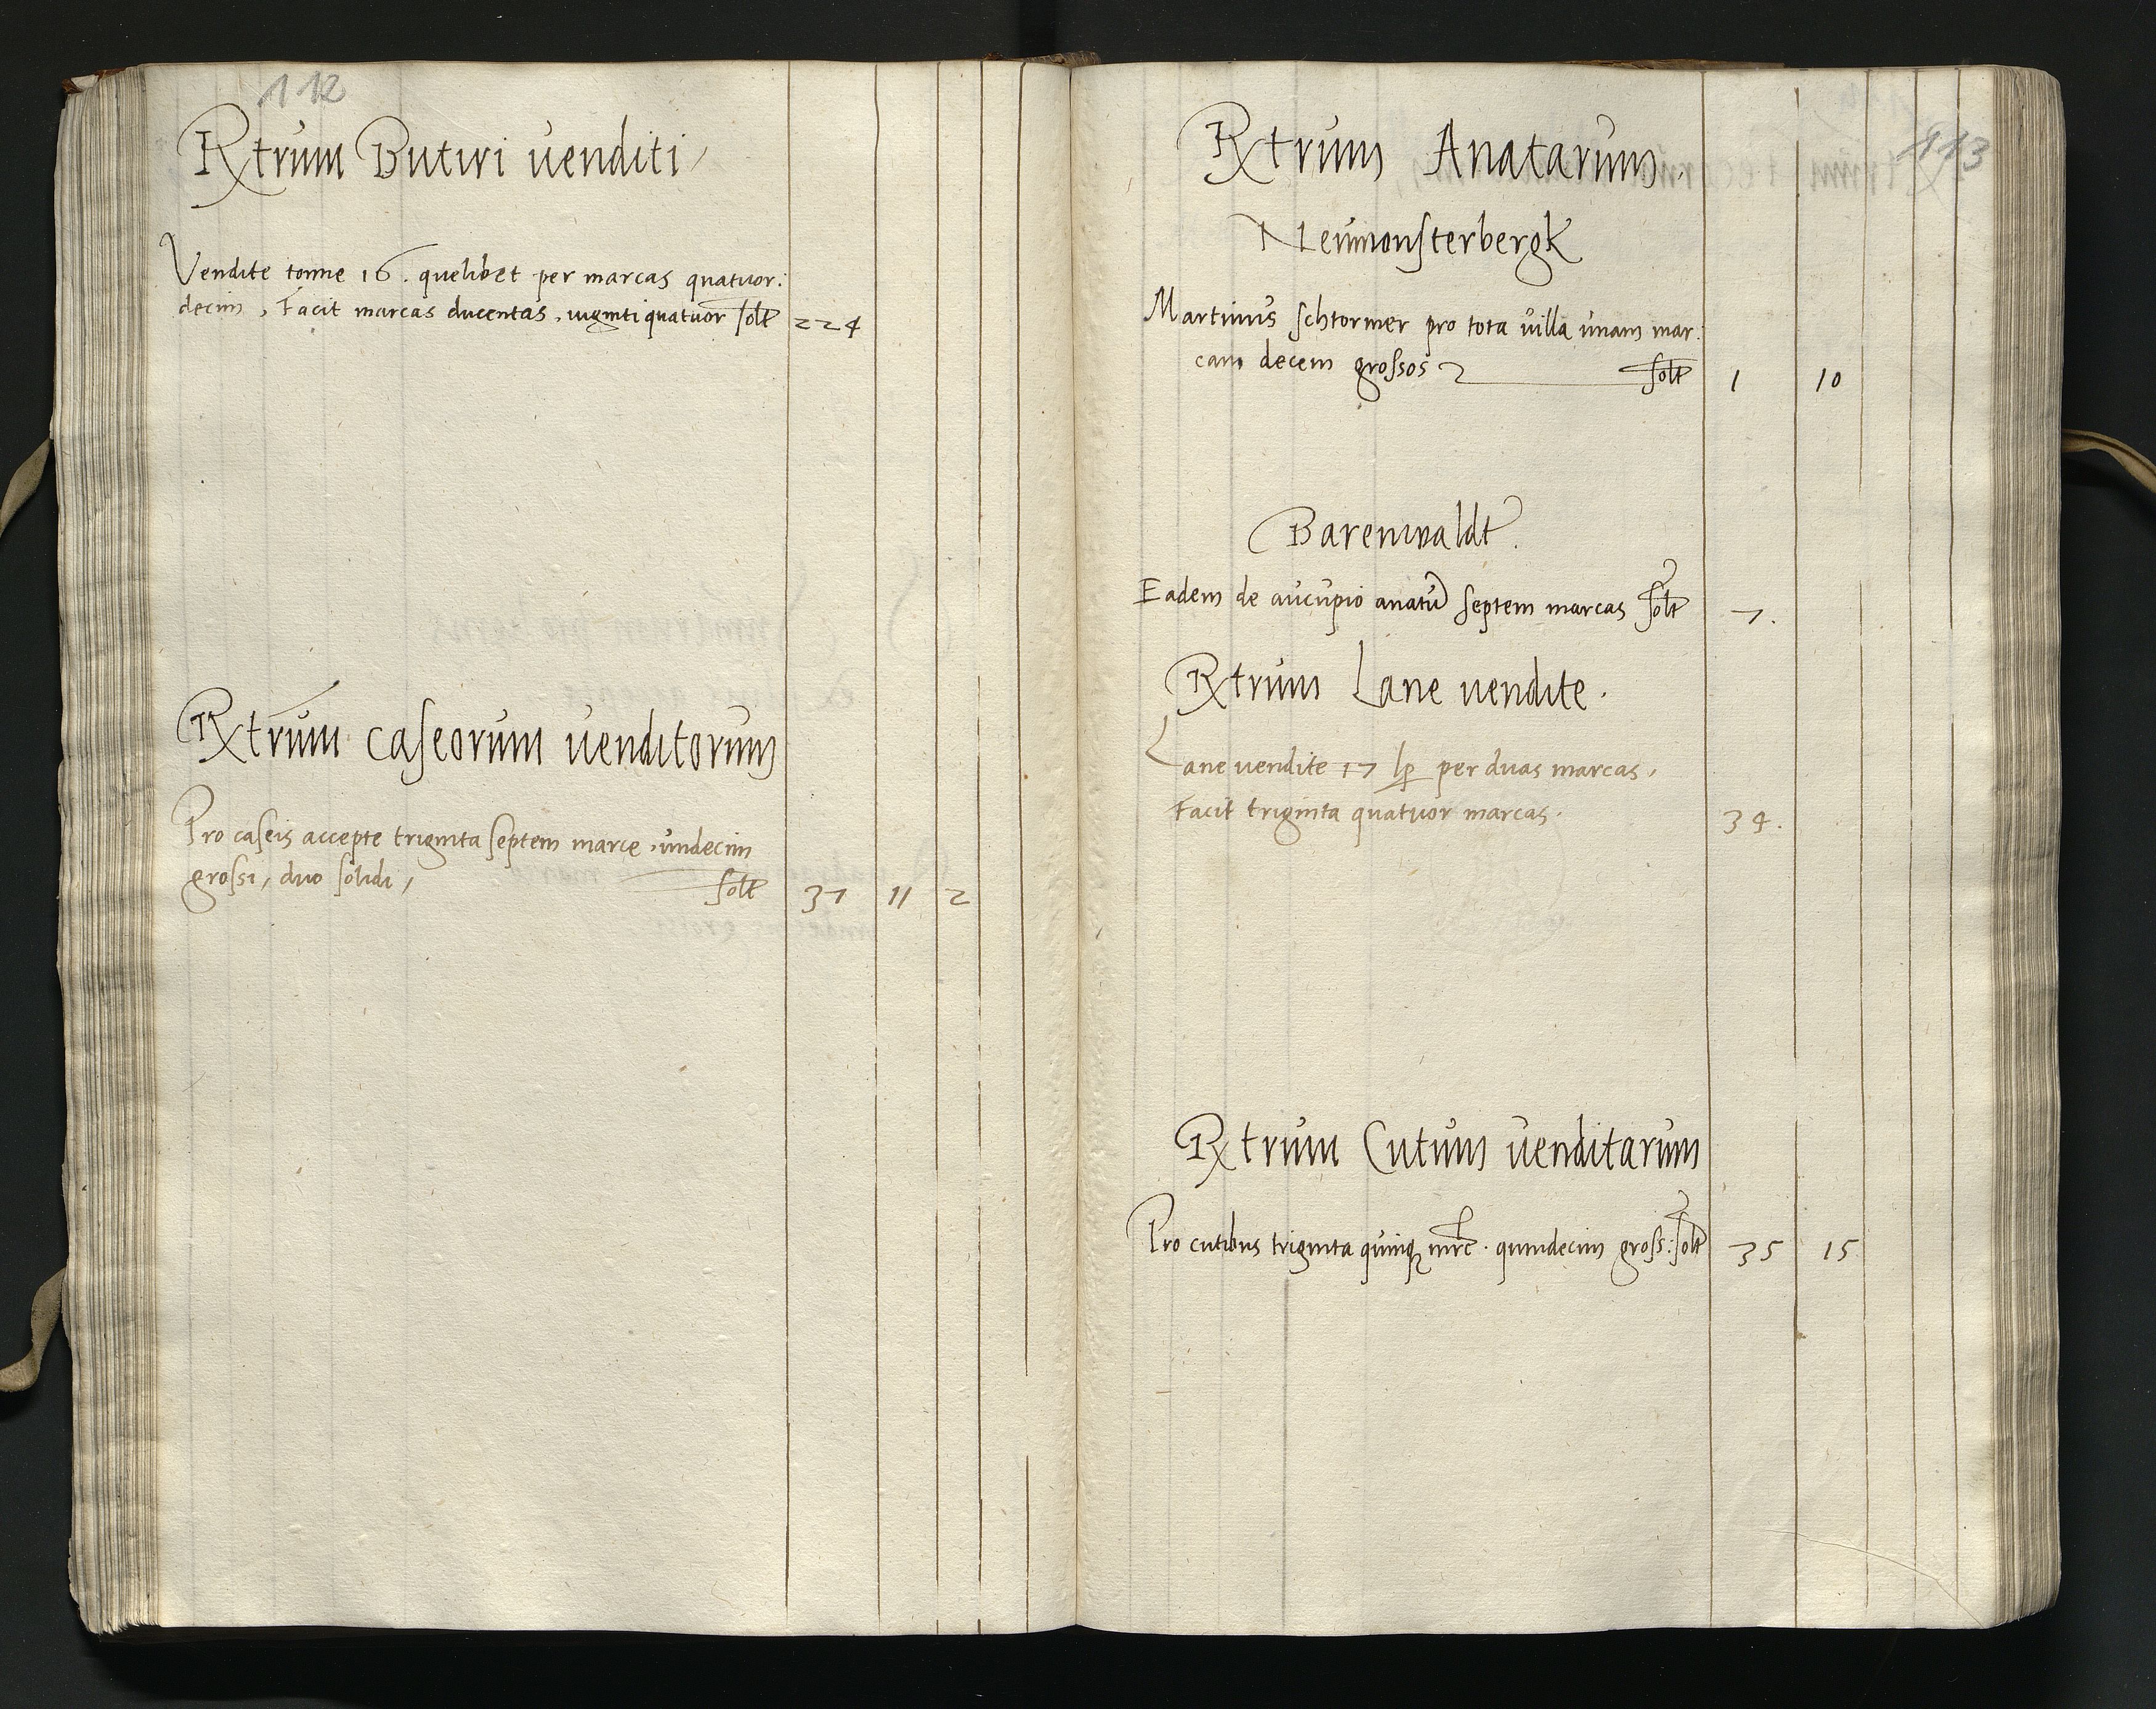 112
Rxtrum Butiri venditi /
Vendite tonne 16. quelibet per marcas quatuor:
decim, Facit marcas ducentas, viginti quatuor solt 224
Rxtrum caseorum venditorum
Pro caseis accepte triginta septem marce, undecim
grossi, duo solidi, solt 37 11 2
113
Rxtrum Anatarum.
Neumonsterbergk
Martinus Schtormer pro tota villa unam mar:
cam decem grossos solt 1 10
Barenwaldt.
Eadem de aucupio anatu septem marcas solt 7.
Rxtrum Lane vendite.
Lane vendite 17 lp per duas marcas,
Facit triginta quatuor marcas. 34.
Rxtrum Cutum venditarum
Pro cutibus triginta quinq mrc. quindecim gross: solt 35 15